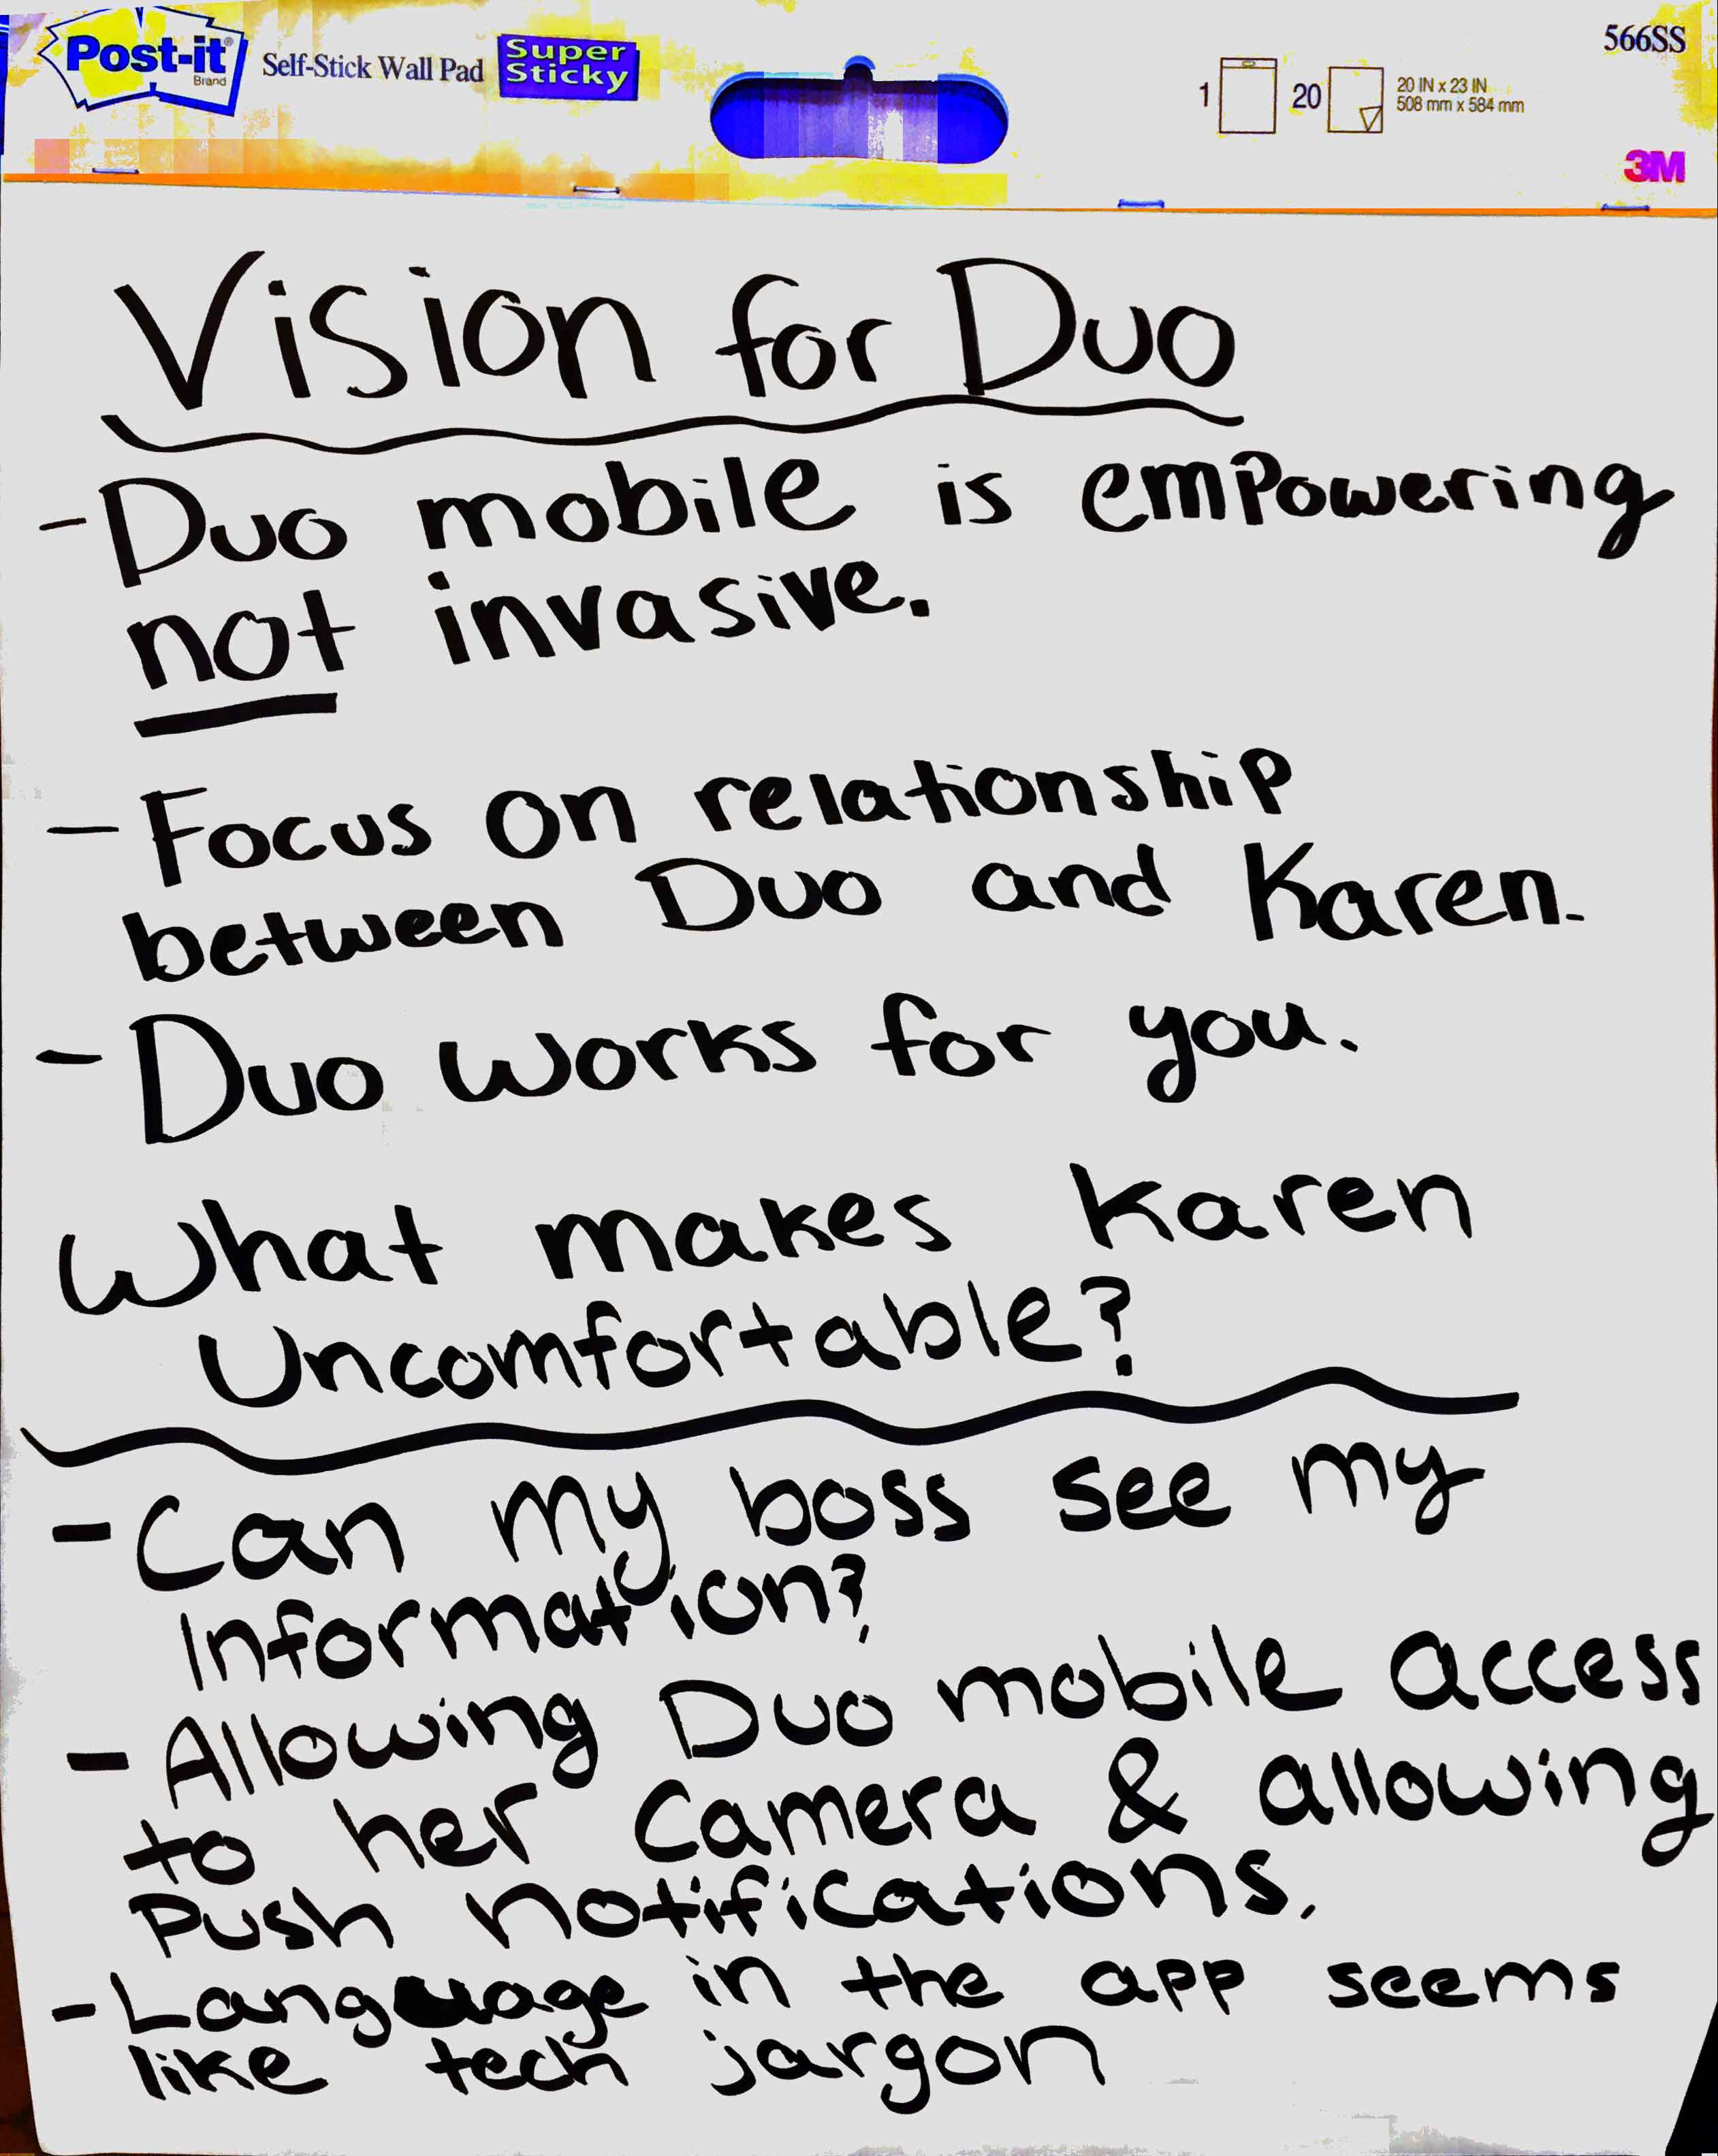 Post-it® Brand Self-Stick Wall Pad Super Sticky
1 20 20 IN x 23 IN 508 mm x 584 mm
566SS
3M
Vision for Duo
- Duo mobile is empowering
not invasive.
- Focus on relationship
between Duo and Karen.
- Duo works for you.
What makes Karen
Uncomfortable?
- Can my boss see my
Information?
- Allowing Duo mobile access
to her camera & allowing
Push notifications.
- Language in the app seems
like tech jargon